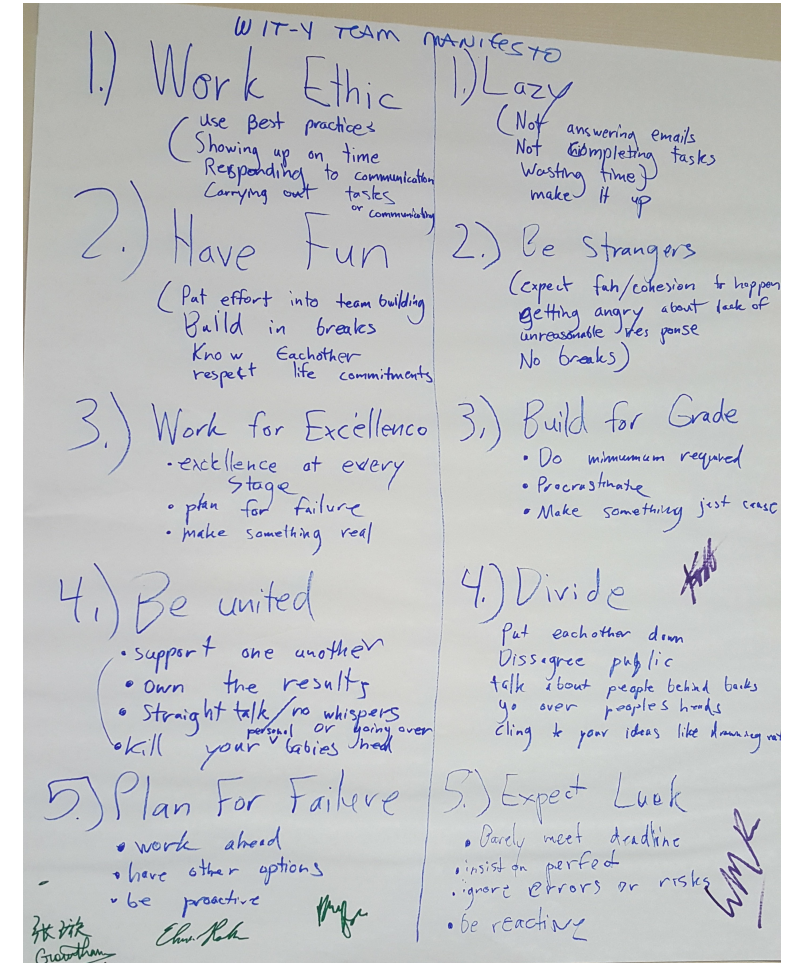 WIT-Y TEAM MANIFESTO
1.) Work Ethic
(Use Best practices
Showing up on time
Responding to communication
Carrying out tasks
or communicating
2.) Have Fun
(Put effort into team building
Build in breaks
Know Eachother
respect life commitments
3.) Work for Excellence
• excellence at every
stage
• plan for failure
• make something real
4.) Be united
• support one another
• own the results
• straight talk/no whispers
or going over head
• kill your personal babies
5.) Plan For Failure
• work ahead
• have other options
• be proactive
张
1.) Lazy
(Not answering emails
Not Completing tasks
Wasting time)
make it up
2.) Be Strangers
(expect fun/cohesion to happen
getting angry about lack of
unreasonable response
No breaks)
3.) Build for Grade
• Do minumum required
• Procrastinate
• Make something just cause
4.) Divide
Put eachother down
Dissagree public
talk about people behind backs
go over peoples heads
cling to your ideas like drowning rat
5.) Expect Luck
• Barely meet deadline
• insist on perfect
• ignore errors or risks
• be reactive